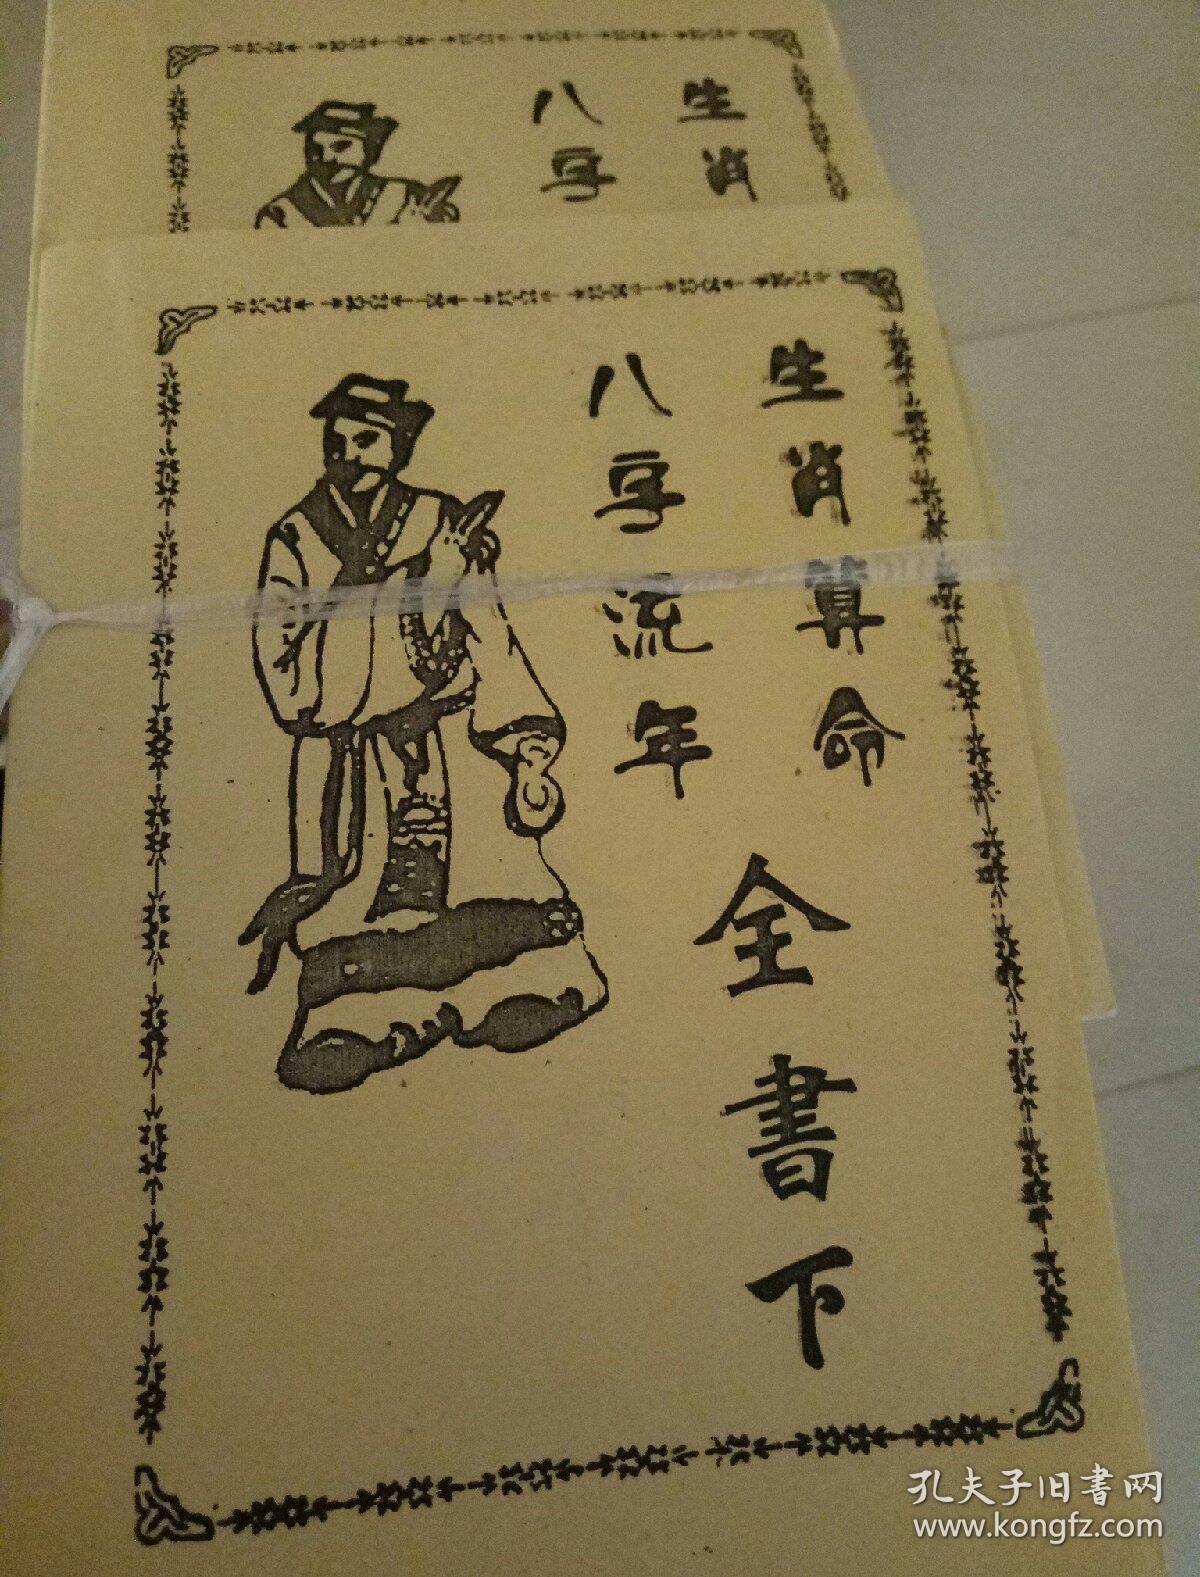 生肖
八字
生肖算命
八字流年
全書下
孔夫子旧書网
www.kongfz.com